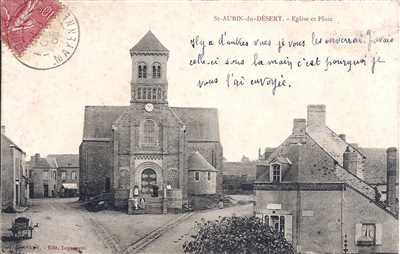 St-AUBIN-du-DÉSERT. - Eglise et Place
Il y a d'autres vues je vous les enverrai. J'avais
celle-ci sous la main c'est pourquoi je
vous l'ai envoyée.
MAYENNE
Edit.